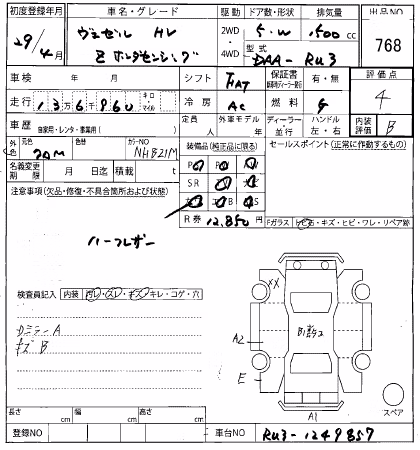 初度登録年月 車名・グレード 駆動 ドア数・形状 排気量 出品NO
29/4月 ヴェゼル HV 2WD 5.W 1500cc 768
Z ホンダセンシング 4WD 型式 DAA-RU3
車検 年 月 シフト FAT 保証書 有・無 評価点
走行 136960 キロ・マイル 冷房 AC 燃料 G 4
車歴 自家用・レンタ・事業用( ) 定員 人 外車モデル 年 ディーラー 並行 ハンドル 左・右 内装評価 B
外色 元色 色替 カラーNO NHB21M 装備品(純正品に限る) セールスポイント(正常に作動するもの)
名義変更期限 月 日迄 積載 t
注意事項(欠品・修復・不具合箇所および状態) SR
R券 12,850円 Fガラス トビ石・キズ・ヒビ・ワレ・リペア跡
ハーフレザー
検査員記入 内装 汚レ・スレ・キズ・キレ・コゲ・穴
XX
DミラーA
キズB
A2
E
A1
スペア
長さ cm 幅 cm 高さ cm
登録NO 車台NO RU3-1249857